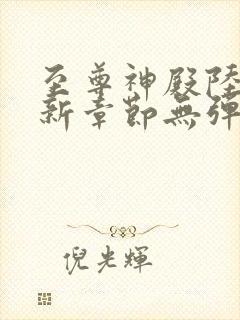 至尊神殿陸
新章節無彈
倪光輝